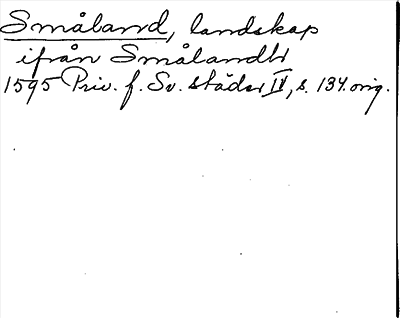 Småland, landskap
ifrån Smålandh
1595 Priv. f. Sv. städer IV, s. 134. orig.